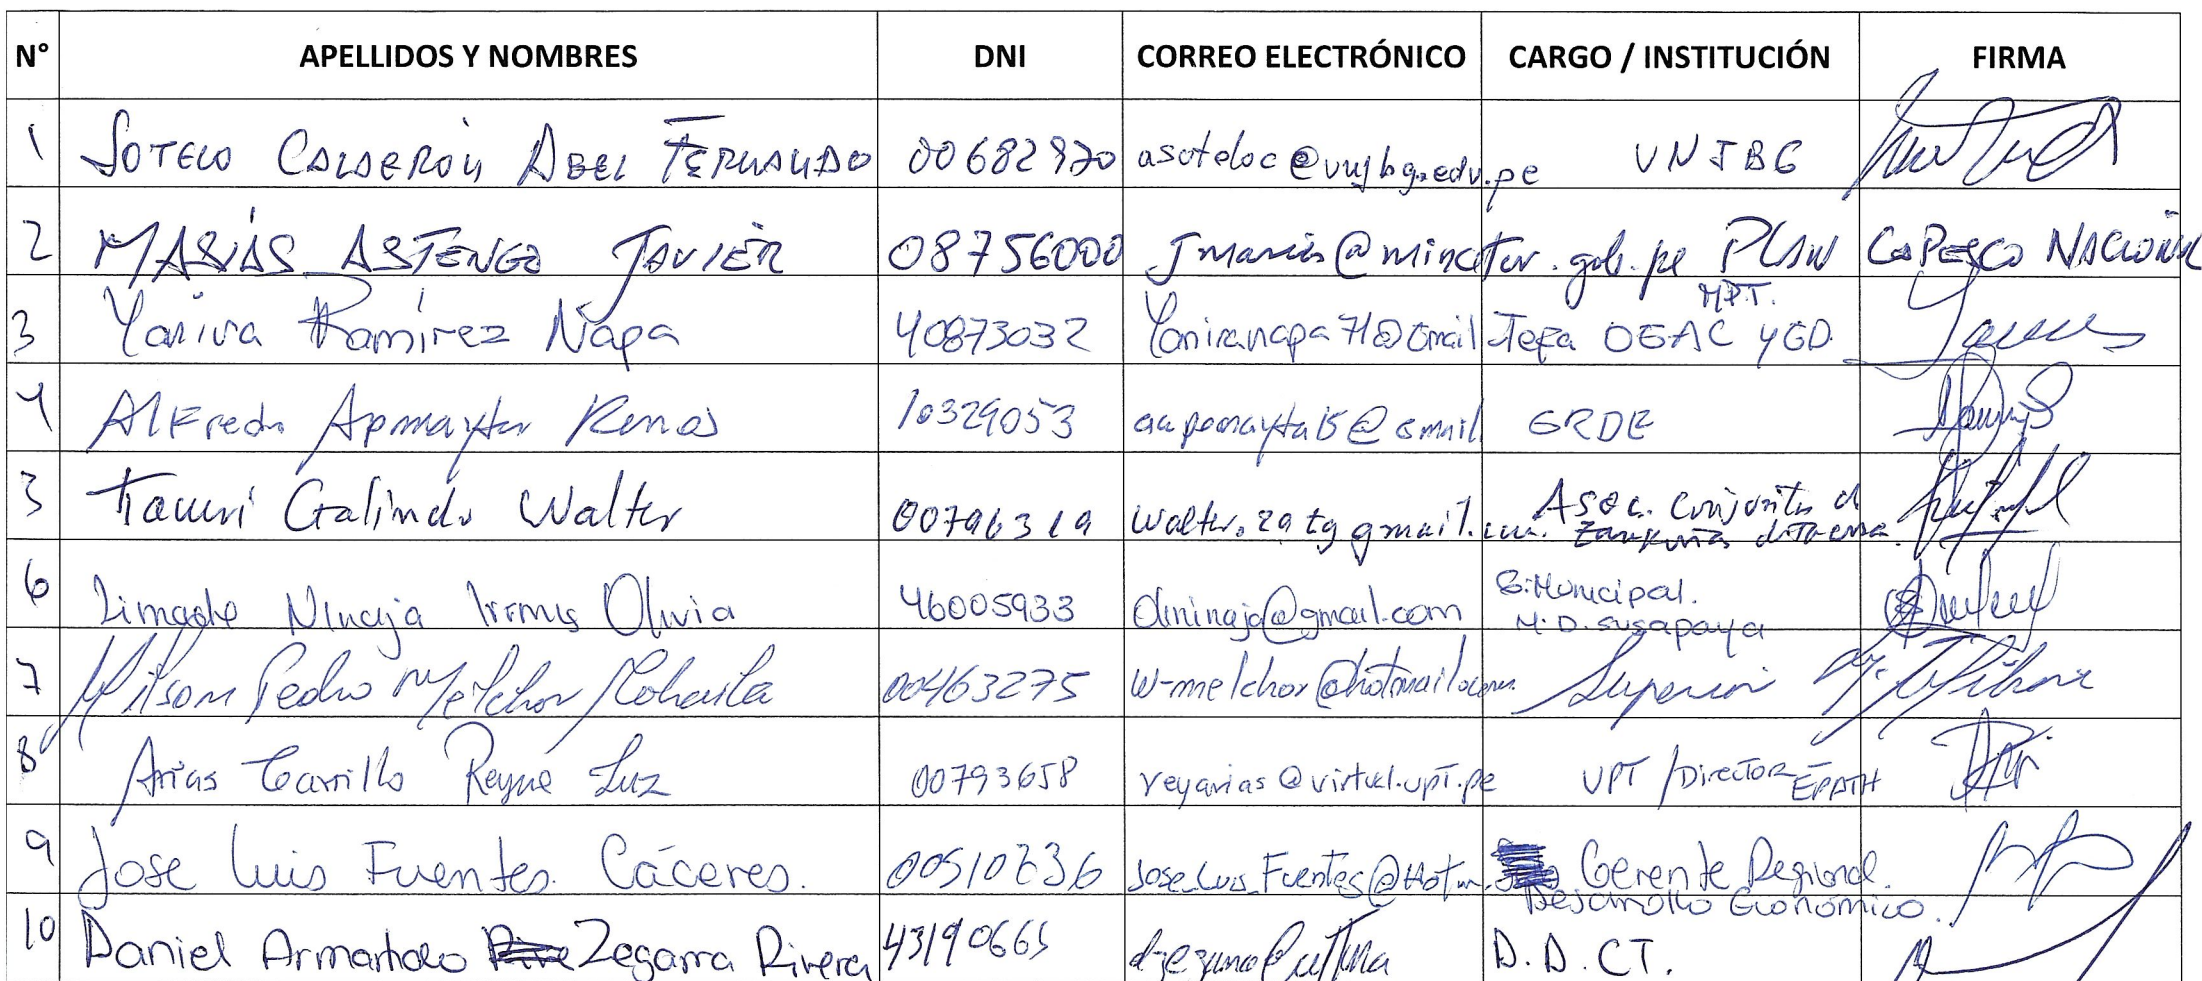 N° APELLIDOS Y NOMBRES DNI CORREO ELECTRÓNICO CARGO / INSTITUCIÓN FIRMA
1 SOTELO CALDERÓN ABEL FERNANDO 00682920 asoteloc@unjbg.edu.pe UNJBG
2 MASÍAS ASTENGO JAVIER 08756000 Jmasias@mincetur.gob.pe PLAN COPESCO NACIONAL
MPT.
3 Yanira Ramírez Ñapa 40873032 Yaniranapa71@Gmail Jefa OGAC y GD.
4 Alfredo Apomayta Renos 10329053 aapomayta15@gmail GRDE
5 Ticuri Galindo Walter 00796319 Walter.29tg gmail.com. Asoc. Conjunto d
6 Limache Ninaja Irems Olivia 46005933 Olininaja@gmail.com G. Municipal.
M.D. Susapaya
7 Wilson Pedro Melchor 00463275 w-melchor@hotmail.com Superior
8 Arias Carrillo Reyne Luz 00793658 reyarias@virtual.upt.pe UPT / Director EPATH
9 Jose Luis Fuentes Cáceres. 00510636 Jose_Luis_Fuentes@Hotm. Gerente Regional.
Desarrollo Económico.
10 Daniel Armando Zegarra Rivera 43190665 D.D.CT.